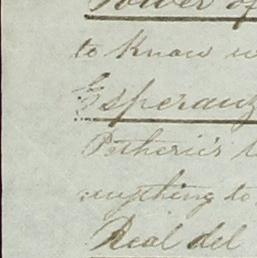 Power of
to know w
Esperanz
Petherick's
anything to
Real del